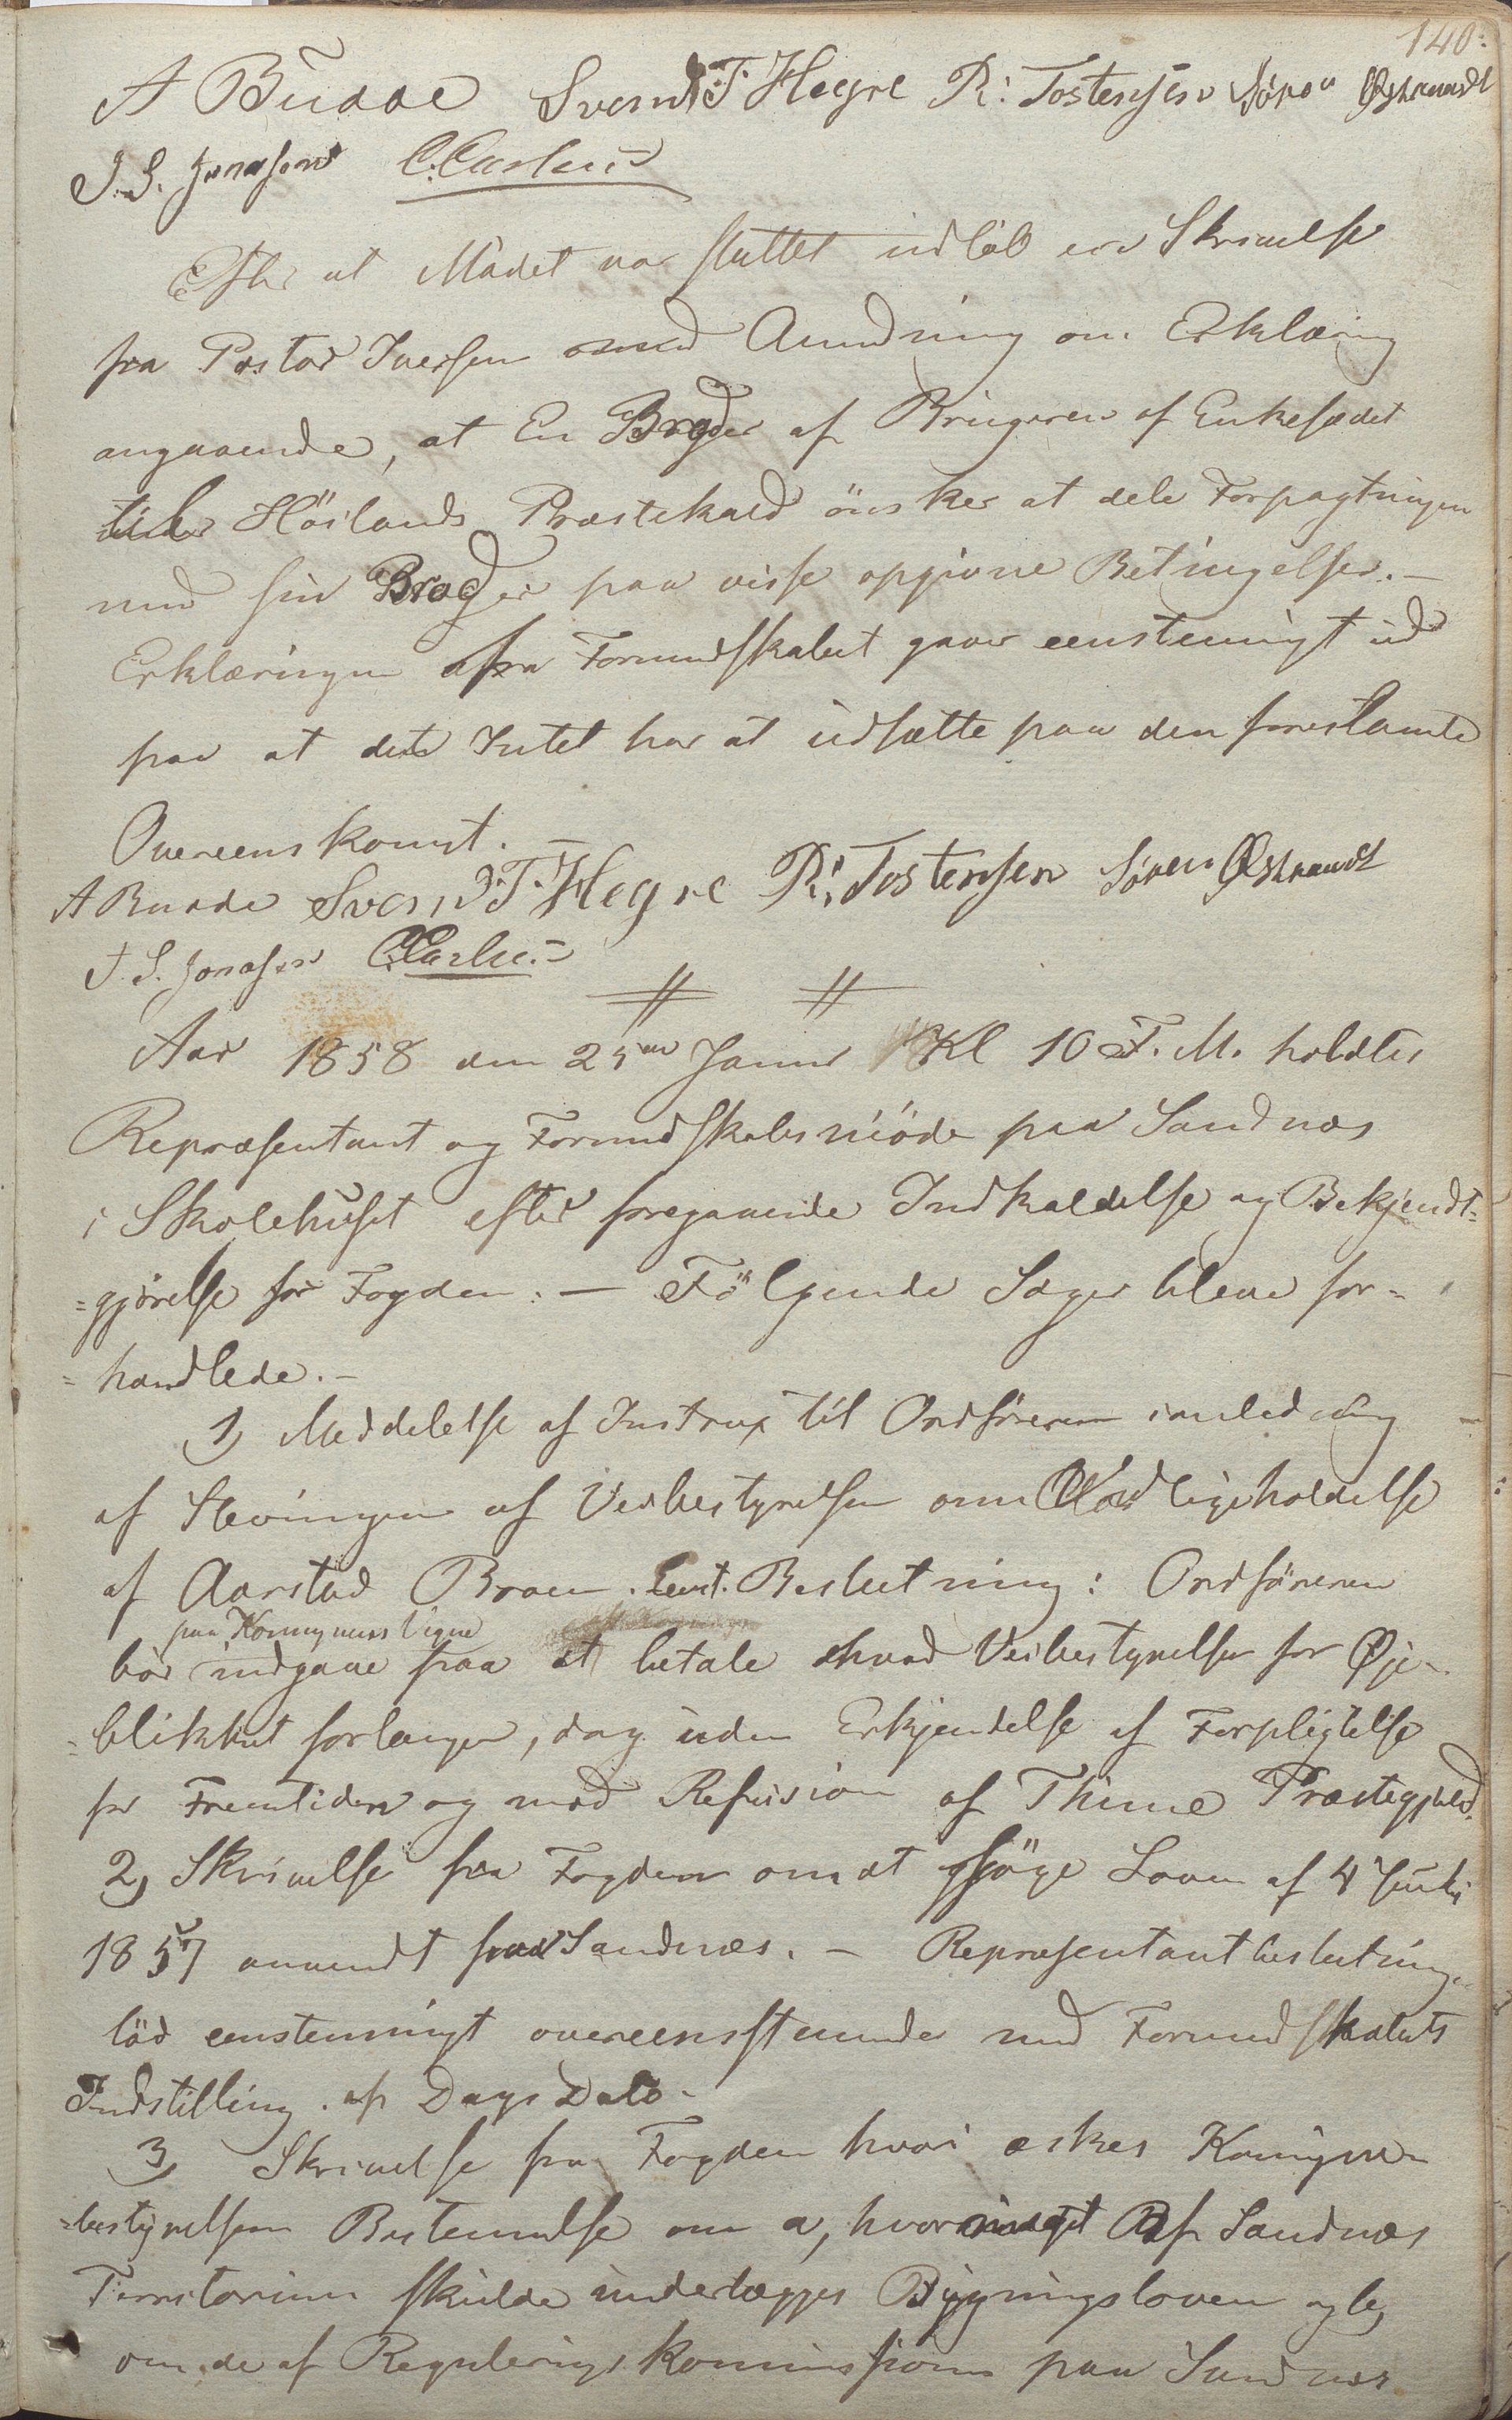 140.
A Budde Svend T Hegre R. Tostensen Sören Østrandt
J. S. Jonassen C. Carlsen
Efter at Mødet var sluttet indløb en Skrivelse
fra Pastor Iversen med Anmodning om Erklæring
angaaende, at En Broder af Brugeren af Enkesædet
til Höilands Præstekald önsker at dele Forpagtningen
med sin Broder paa visse opgivne Betingelser. —
Erklæringen fra Formandskabet gaaer eenstemmigt ud
paa at det Intet har at udsætte paa den
Overeenskomst. —
A Budde Svend T. Hegre R. Tostensen Sören Østrandt
J. S. Jonassen C. Carlsen
Aar 1858 den 25de Januar Kl 10 F. M. holdtes
Repræsentant og Formandskabsmöde paa Sandnæs
i Skolehuset efter foregaaende Indkaldelse og Bekjendt-
=gjörelse for Fogden. — Fölgende Sager bleve for-
=handlede. —
1) Meddelelse af Instrux til Ordföreren i anledning
af Stevningen af Veibestyrelsen om Vedligeholdelse
af Aarstad Broen. Eenst. Beslutning: Ordföreren
paa Kommunens Vegne
bör indgaae paa at betale hvad Veibestyrelsen for Øje-
=blikket forlanger, dog uden Erkjendelse af Forpligtelse
for Fremtiden og mod Refusion af Thime Præstegjeld.
2) Skrivelse fra Fogden om at söge Loven af
1857 anvendt paa Sandnæs. — Repræsentantbeslutningen
löd eenstemmigt overeensstemmende med Formandskabets
Indstilling af Dags Dato.
3) Skrivelse fra Fogden hvori æskes Kommune-
=bestyrelsens Bestemmelse om a, hvormeget af Sandnæs
Territorium skulde underlægges Bygningsloven og b,
om de af Reguleringskommissionen paa Sandnæs